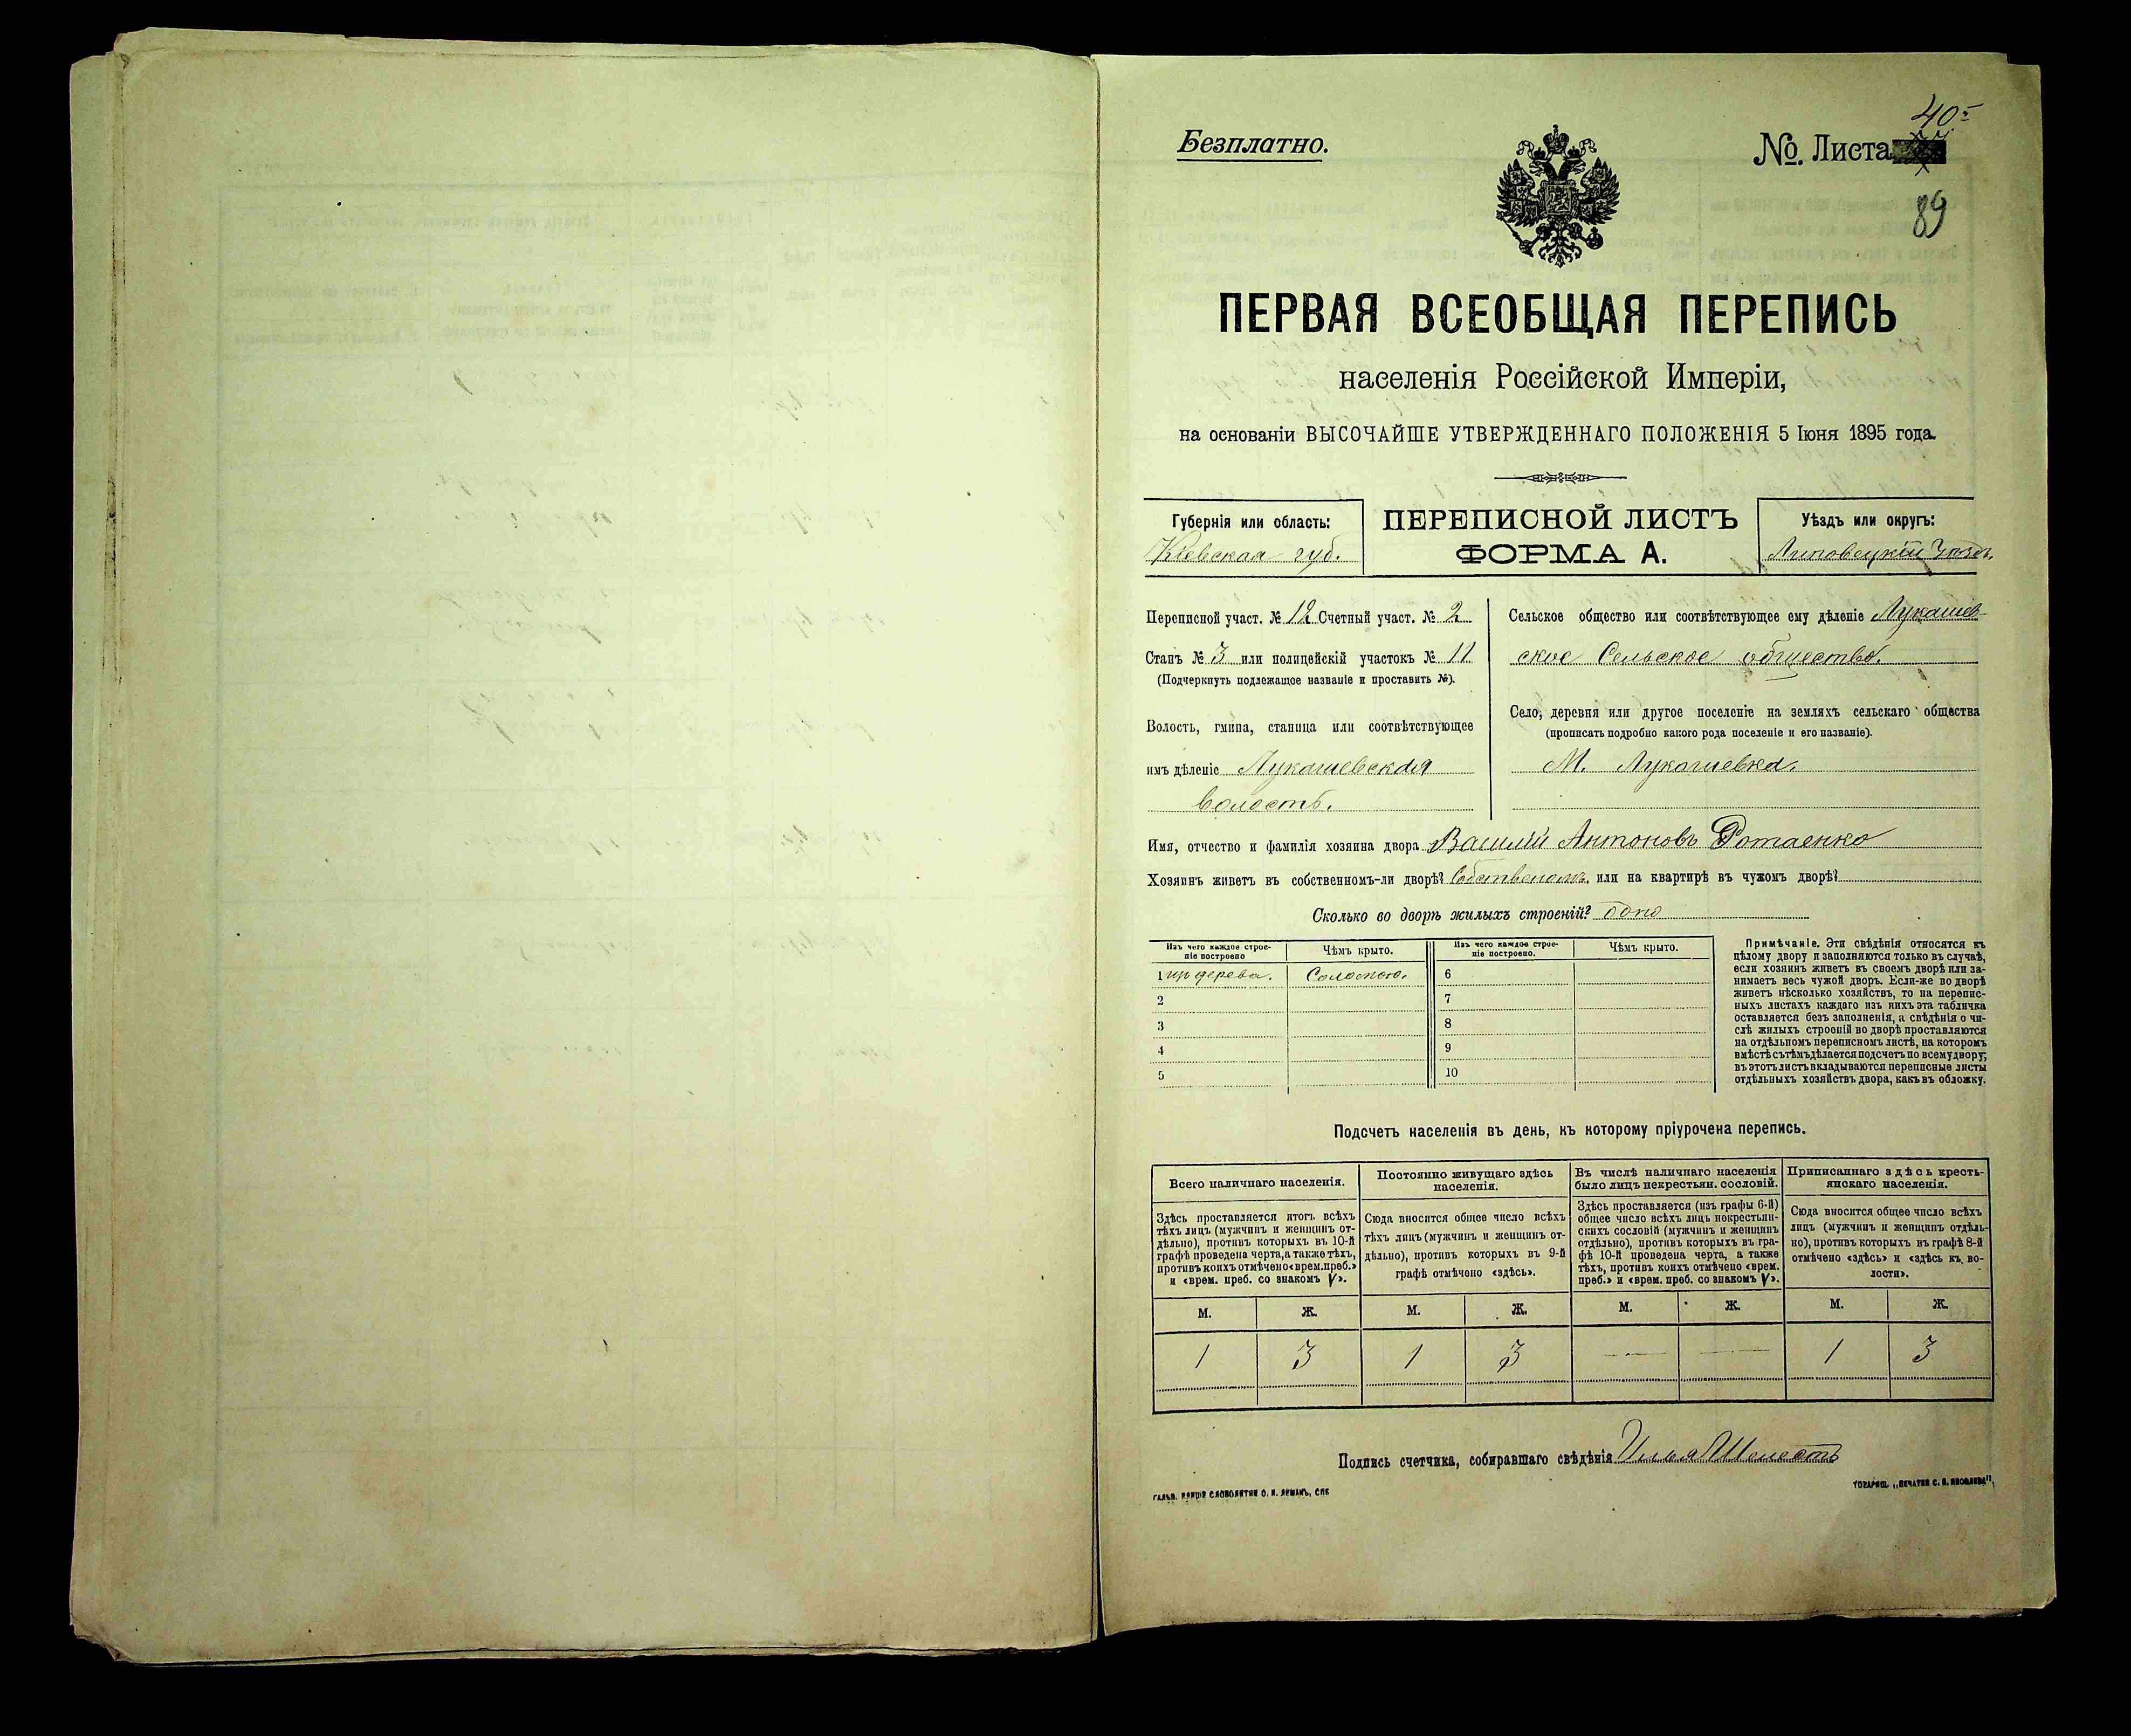 Безплатно.
№. Листа
40
89
ПЕРВАЯ ВСЕОБЩАЯ ПЕРЕПИСЬ
населенія Россійской Имперіи,
на основаніи ВЫСОЧАЙШЕ УТВЕРЖДЕННАГО ПОЛОЖЕНІЯ 5 Іюня 1895 года.
Губернія или область:
Кіевская губ.
ПЕРЕПИСНОЙ ЛИСТЪ
ФОРМА А.
Уѣздъ или округъ:
Липовецкій Уѣздъ.
Переписной участ. № 12 Счетный участ. № 2
Станъ № 3 или полицейскій участокъ № 11
(Подчеркнуть подлежащое названіе и проставить №).
Волость, гмина, станица или соотвѣтствующее
имъ дѣленіе Лукашевская
волость.
Сельское общество или соотвѣтствующее ему дѣленіе Лукашев-
ское Сельское общество.
Село, деревня или другое поселеніе на земляхъ сельскаго общества
(прописать подробно какого рода поселеніе и его названіе).
М. Лукашевка.
Имя, отчество и фамилія хозяина двора Василій Антоновъ Ротаенко
Хозяинъ живетъ въ собственномъ-ли дворѣ? Собственомъ. или на квартирѣ въ чужомъ дворѣ?
Сколько во дворѣ жилыхъ строеній? одно
Изъ чего каждое строе-
ніе построено
Чѣмъ крыто.
Изъ чего каждое строе-
ніе построено.
Чѣмъ крыто.
1 изъ дерева. Соломою. 6
2 7
3 8
4 9
5 10
Примѣчаніе. Эти свѣдѣнія относятся къ
цѣлому двору и заполняются только въ случаѣ,
если хозяинъ живетъ въ своемъ дворѣ или за-
нимаетъ весь чужой дворъ. Если-же во дворѣ
живетъ нѣсколько хозяйствъ, то на перепис-
ныхъ листахъ каждаго изъ нихъ эта табличка
оставляется безъ заполненія, а свѣдѣнія о чи-
слѣ жилыхъ строеній во дворѣ проставляются
на отдѣльномъ переписномъ листѣ, на которомъ
вмѣстѣ съ тѣмъ дѣлается подсчетъ по всему двору;
въ этотъ листъ вкладываются переписные листы
отдѣльныхъ хозяйствъ двора, какъ въ обложку.
Подсчетъ населенія въ день, къ которому пріурочена перепись.
Всего наличнаго населенія.
Постоянно живущаго здѣсь
населенія.
Въ числѣ наличнаго населенія
было лицъ некрестьян. сословій.
Приписаннаго здѣсь кресть-
янскаго населенія.
Здѣсь проставляется итогъ всѣхъ
тѣхъ лицъ (мужчинъ и женщинъ от-
дѣльно), противъ которыхъ въ 10-й
графѣ проведена черта, а также тѣхъ,
противъ коихъ отмѣчено «врем. преб.»
и «врем. преб. со знакомъ V».
Сюда вносится общее число всѣхъ
тѣхъ лицъ (мужчинъ и женщинъ от-
дѣльно), противъ которыхъ въ 9-й
графѣ отмѣчено «здѣсь».
Здѣсь проставляется (изъ графы 6-й)
общее число всѣхъ лицъ некрестьян-
скихъ сословій (мужчинъ и женщинъ
отдѣльно), противъ которыхъ въ гра-
фѣ 10-й проведена черта, а также
тѣхъ, противъ коихъ отмѣчено «врем.
преб.» и «врем. преб. со знакомъ V».
Сюда вносится общее число всѣхъ
лицъ (мужчинъ и женщинъ отдѣль-
но), противъ которыхъ въ графѣ 8-й
отмѣчено «здѣсь» и «здѣсь къ во-
лости».
М. Ж. М. Ж. М. Ж. М. Ж.
1 3 1 3 — — 1 3
Подпись счетчика, собиравшаго свѣдѣнія Илья Шелестъ
ГАЛЬВ. КЛИШЕ СЛОВОЛИТНИ О. И. ЛЕМАНЪ, СПБ
ТОВАРИЩ. „ПЕЧАТНЯ С. П. ЯКОВЛЕВА",